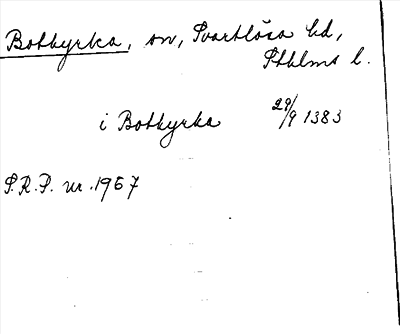 Botkyrka, sn, Svartlösa hd,
Sthlms l.
i Botkyrka 29/9 1383
S.R.P. nr. 1967